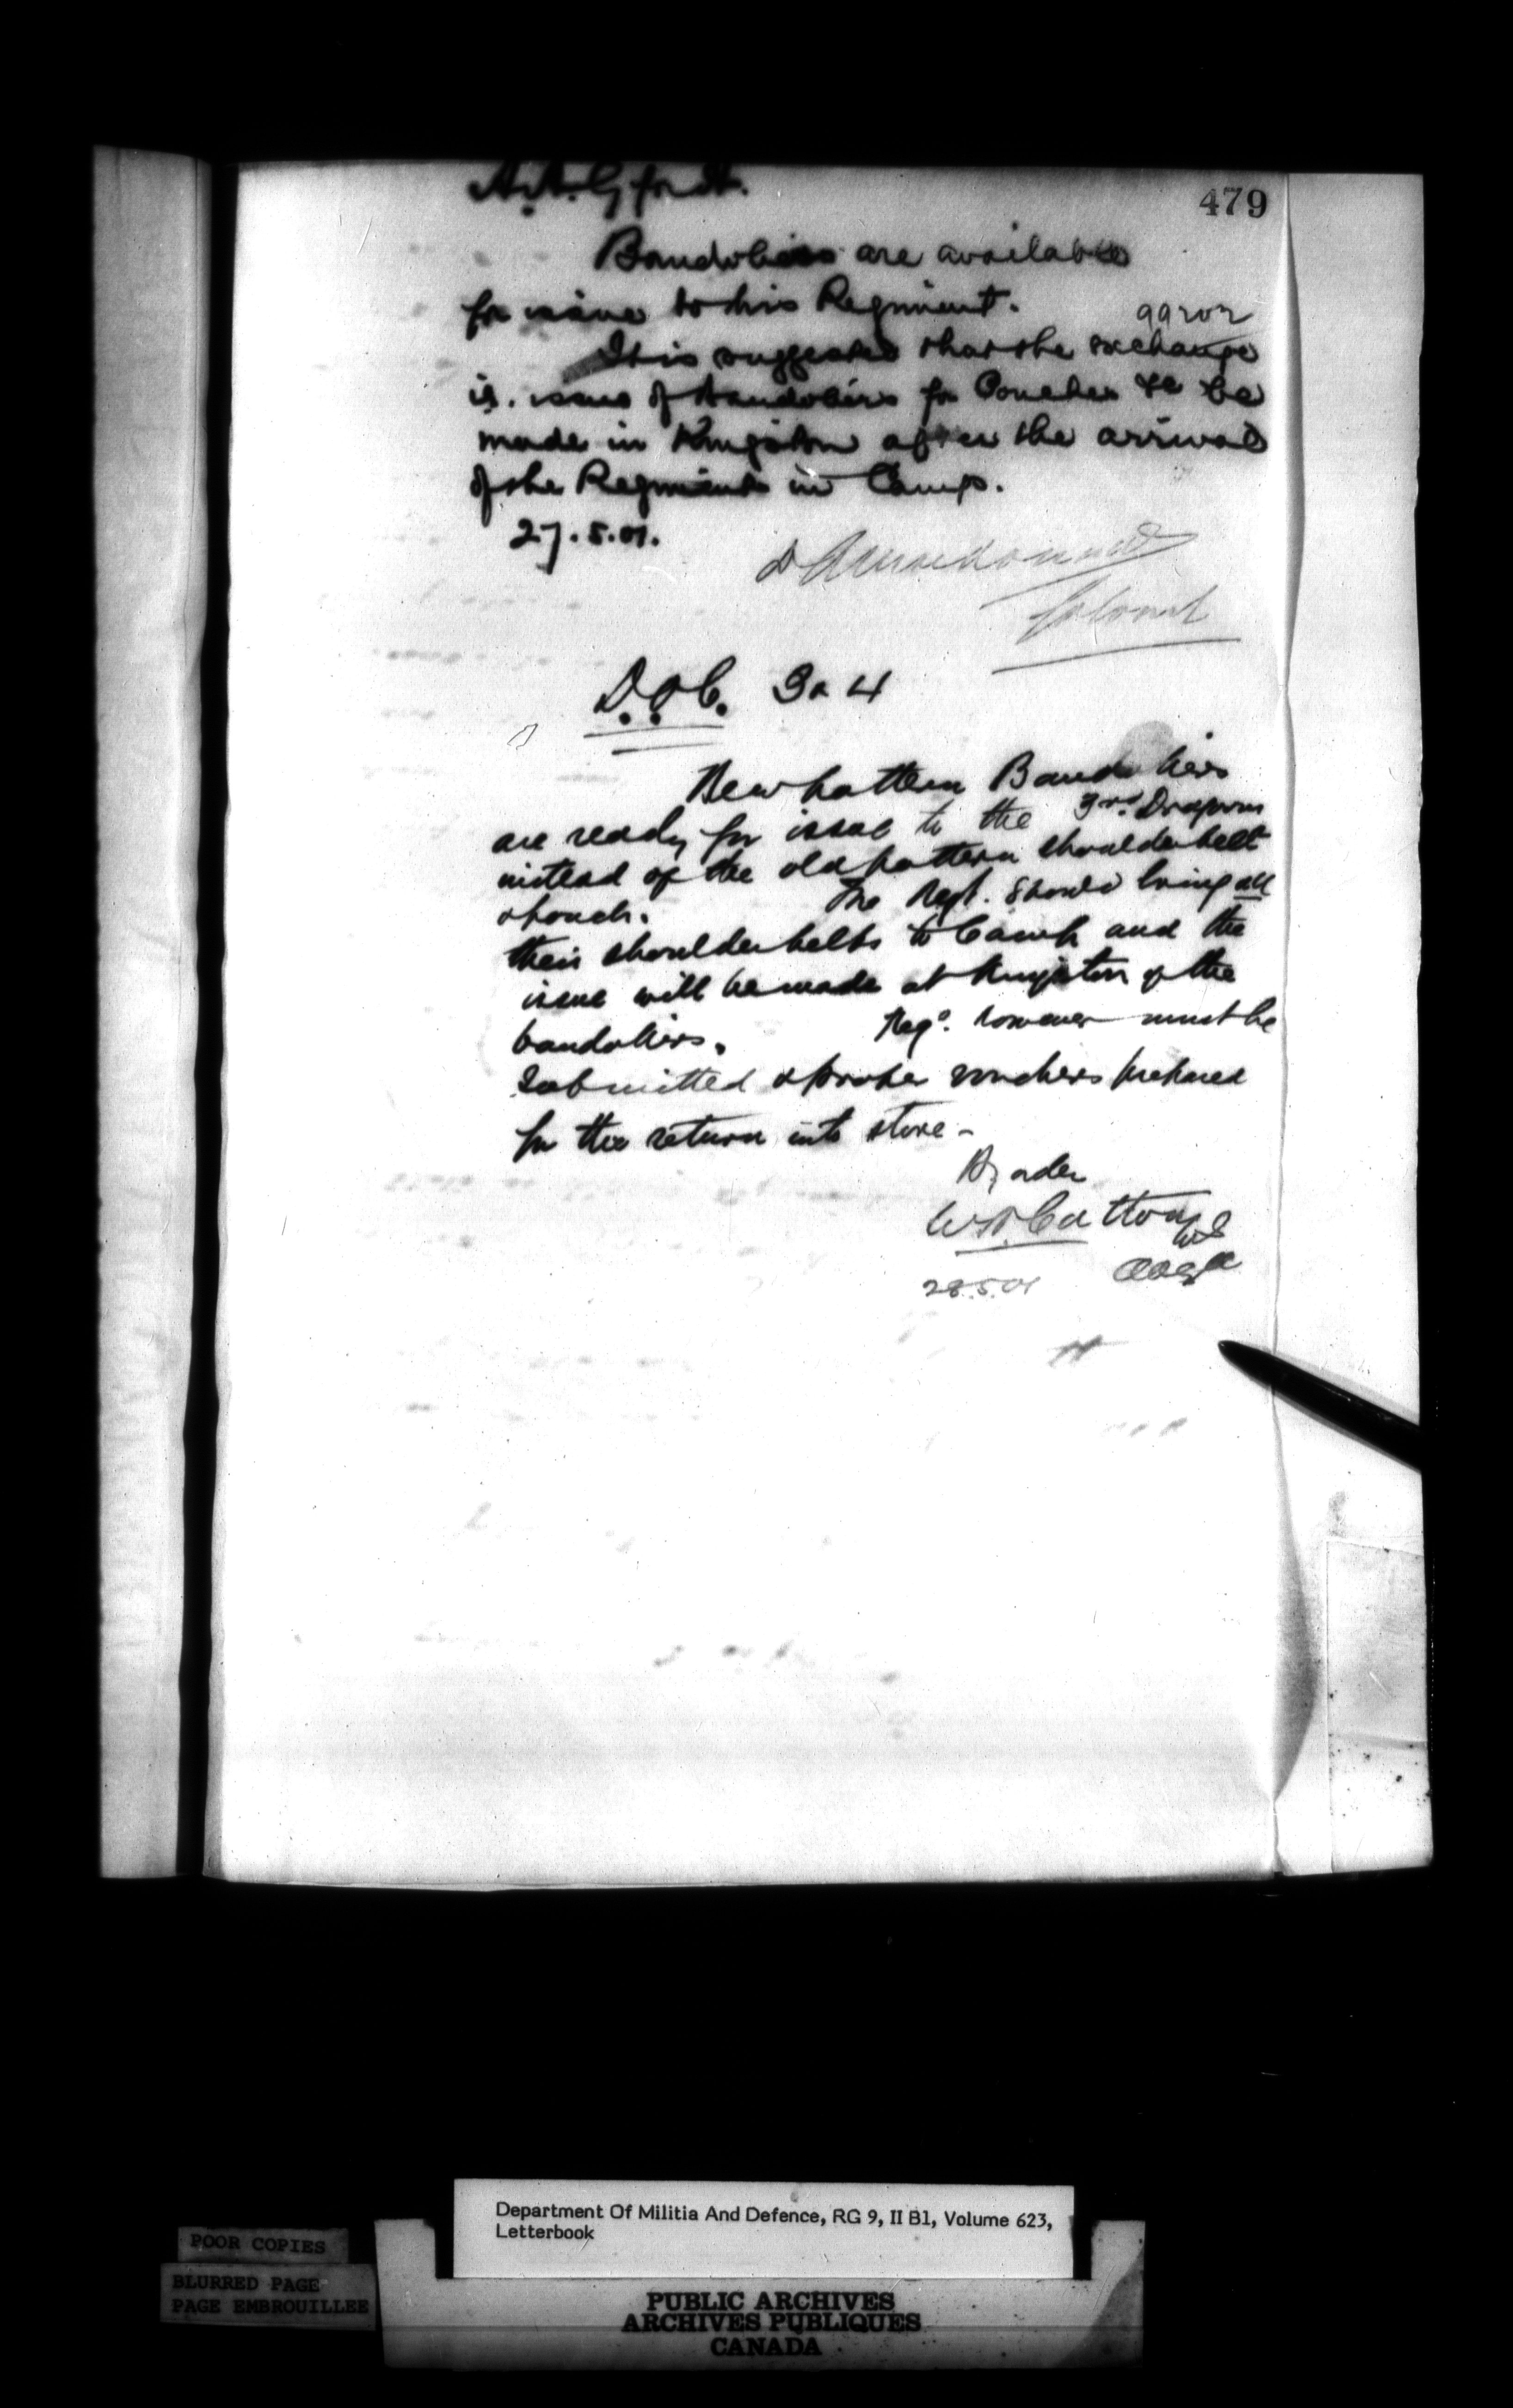 479
A.A.G. for Art.
Bandoliers are available
for issue to this Regiment.
99202
It is suggested that the exchange
ie. issue of Bandoliers for Pouches &c be
made in Kingston after the arrival
of the Regiment in Camp.
27.5.01.
D A Macdonald
Colonel
D.O.C. 3 & 4
New pattern Bandoliers
are ready for issue to the 3rd Dragoons
instead of the old pattern shoulder belt
& pouch. The Regt. should bring all
their shoulder belts to Camp and the
issue will be made at Kingston of the
bandoliers. Reqn. however must be
submitted & proper vouchers prepared
for the return into store -
By order
28.5.01
Department Of Militia And Defence, RG 9, II B1, Volume 623,
Letterbook
POOR COPIES
BLURRED PAGE
PAGE EMBROUILLEE
PUBLIC ARCHIVES
ARCHIVES PUBLIQUES
CANADA